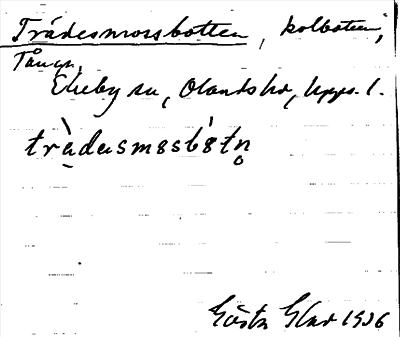 Trådesmorsbotten, kolbotten,
Tångn.
Ekeby sn, Olands hd, Upps. l.
trådesmssbstn
Gösta Elow 1936